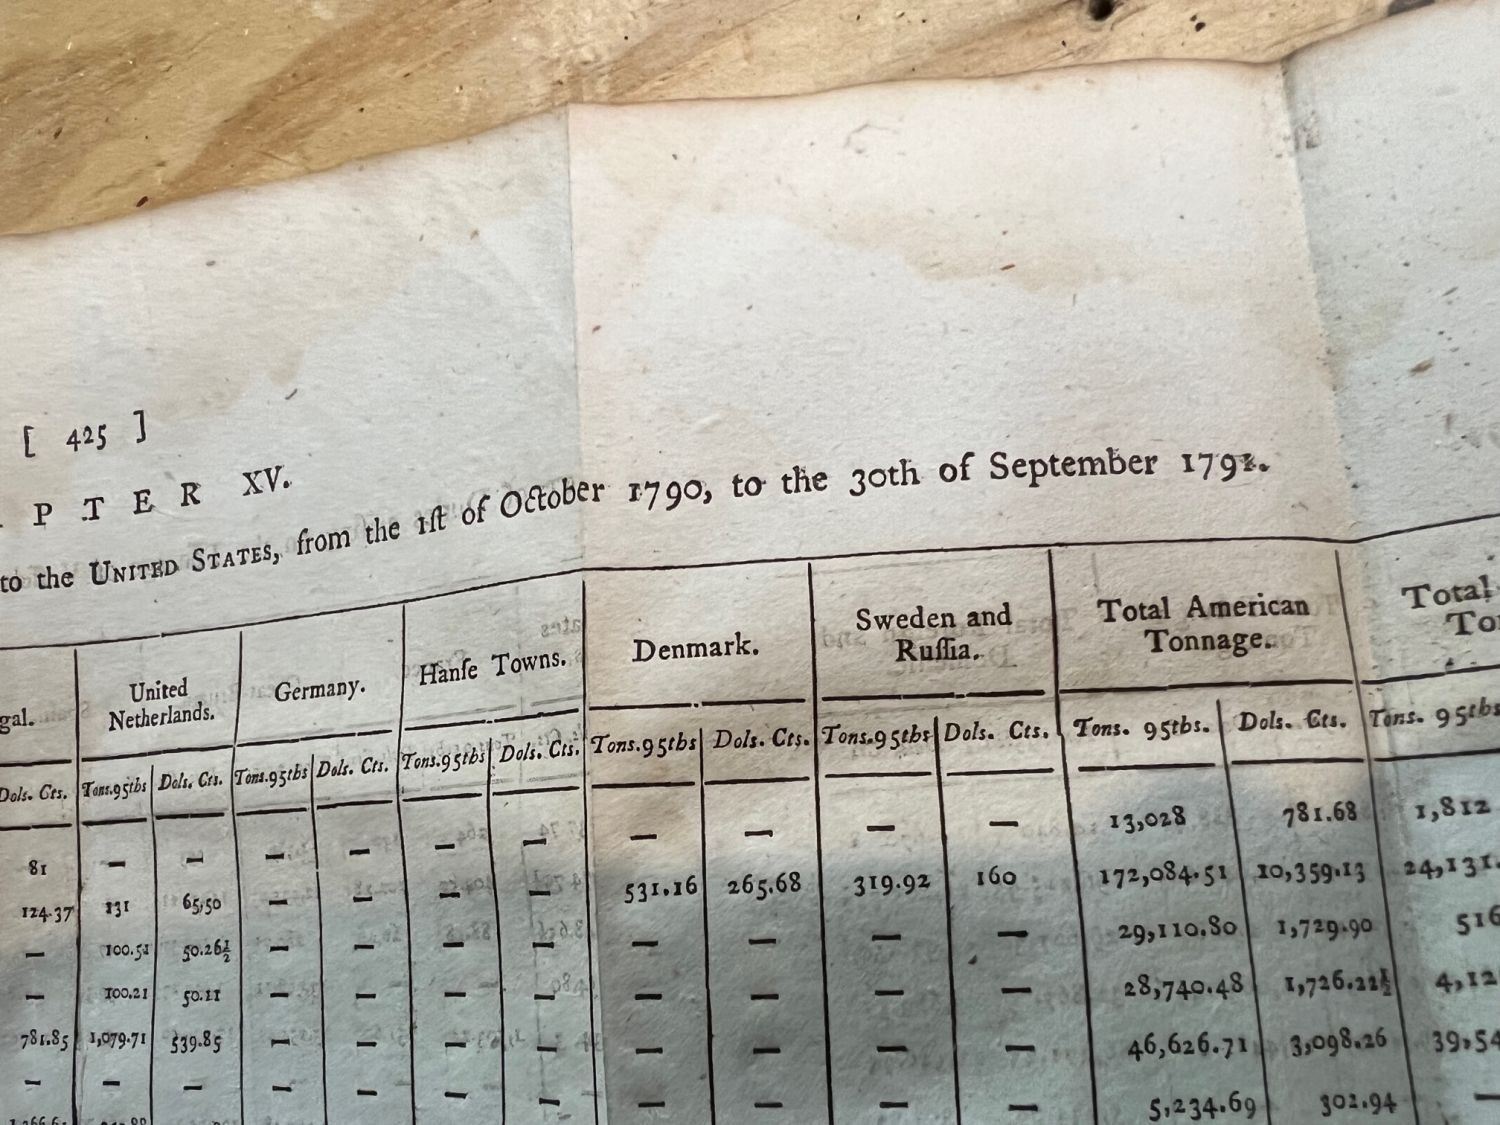 [ 425 ]
P T E R XV.
to the UNITED STATES, from the 1ſt of October 1790, to the 30th of September 1791.
gal. United Netherlands. Germany. Hanſe Towns. Denmark. Sweden and Ruſſia. Total American Tonnage. Total
Dols. Cts. Tons.95ths Dols. Cts. Tons.95ths Dols. Cts. Tons.95ths Dols. Cts. Tons.95ths Dols. Cts. Tons.95ths Dols. Cts. Tons. 95ths. Dols. Cts. Tons. 95ths
81 — — — — — — — — — — 13,028 781.68 1,812
124.37 131 65,50 — — — — 531.16 265.68 319.92 160 172,084.51 10,359.13 24,131.
— 100.51 50.26½ — — — — — — — — 29,110.80 1,729.90 516
— 100.21 50.11 — — — — — — — — 28,740.48 1,726.22½ 4,12
781.85 1,079.71 539.85 — — — — — — — — 46,626.71 3,098.26 39,54
— — — — — — — — — — — 5,234.69 302.94 —